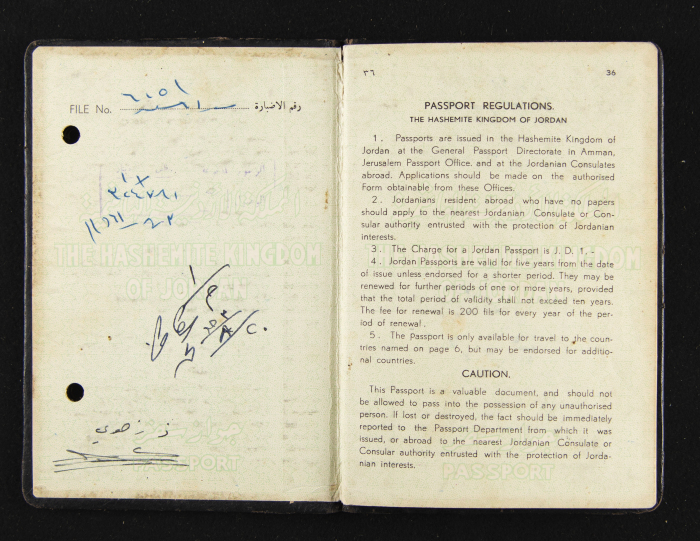 FILE No. ٦٠٥٦ رقم الاضبارة
THE HASHEMITE KINGDOM
OF JORDAN
PASSPORT
٣٦ 36
PASSPORT REGULATIONS.
THE HASHEMITE KINGDOM OF JORDAN
1 . Passports are issued in the Hashemite Kingdom of
Jordan at the General Passport Directorate in Amman,
Jerusalem Passport Office. and at the Jordanian Consulates
abroad. Applications should be made on the authorised
Form obtainable from these Offices.
2 . Jordanians resident abroad who have no papers
should apply to the nearest Jordanian Consulate or Con-
sular authority entrusted with the protection of Jordanian
interests.
3 . The Charge for a Jordan Passport is J. D. 1. -
4 . Jordan Passports are valid for five years from the date
of issue unless endorsed for a shorter period. They may be
renewed for further periods of one or more years, provided
that the total period of validity shall not exceed ten years.
The fee for renewal is 200 fils for every year of the per-
iod of renewal .
5 . The Passport is only available for travel to the coun-
tries named on page 6, but may be endorsed for additio-
nal countries.
CAUTION.
This Passport is a valuable document, and should not
be allowed to pass into the possession of any unauthorised
person. If lost or destroyed, the fact should be immediately
reported to the Passport Department from which it was
issued, or abroad to the nearest Jordanian Consulate or
Consular authority entrusted with the protection of Jorda-
nian interests.
PASSPORT